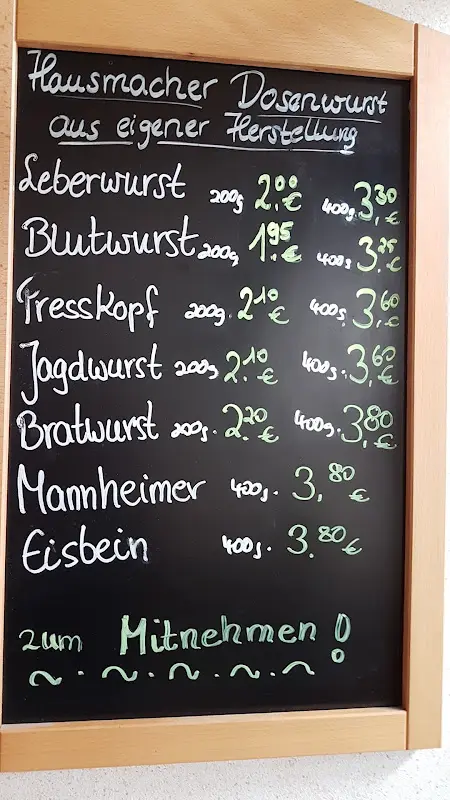 Hausmacher Dosenwurst
aus eigener Herstellung
Leberwurst 200g 2.00 € 400g. 3,30 €
Blutwurst 200g 1.95 € 400g 3.25 €
Presskopf 200g. 2.10 € 400g. 3,60 €
Jagdwurst 200g 2.10 € 400g. 3,60 €
Bratwurst 200g. 2.20 € 400g. 3,80 €
Mannheimer 400g. 3,80 €
Eisbein 400g. 3.80 €
zum Mitnehmen!